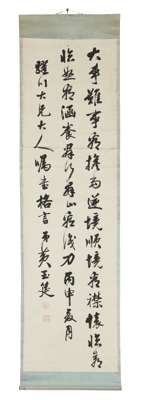 大事難事看擔當逆境順境看襟懷臨喜
臨怒看涵養群行群止看識力 丙申夏月
大兄大人囑書格言 弟黃玉